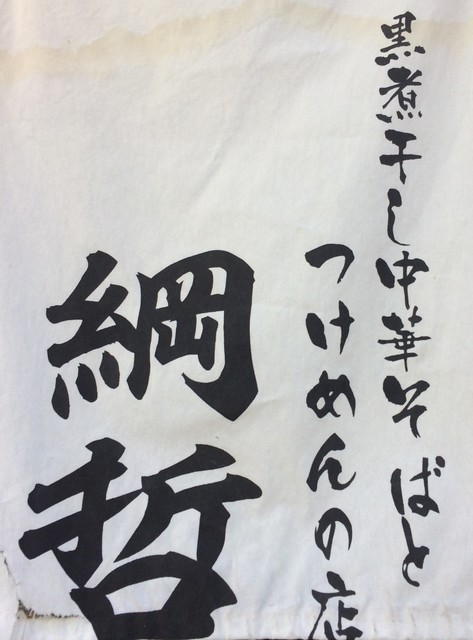 黒煮干し中華そばと
つけめんの店
綱哲